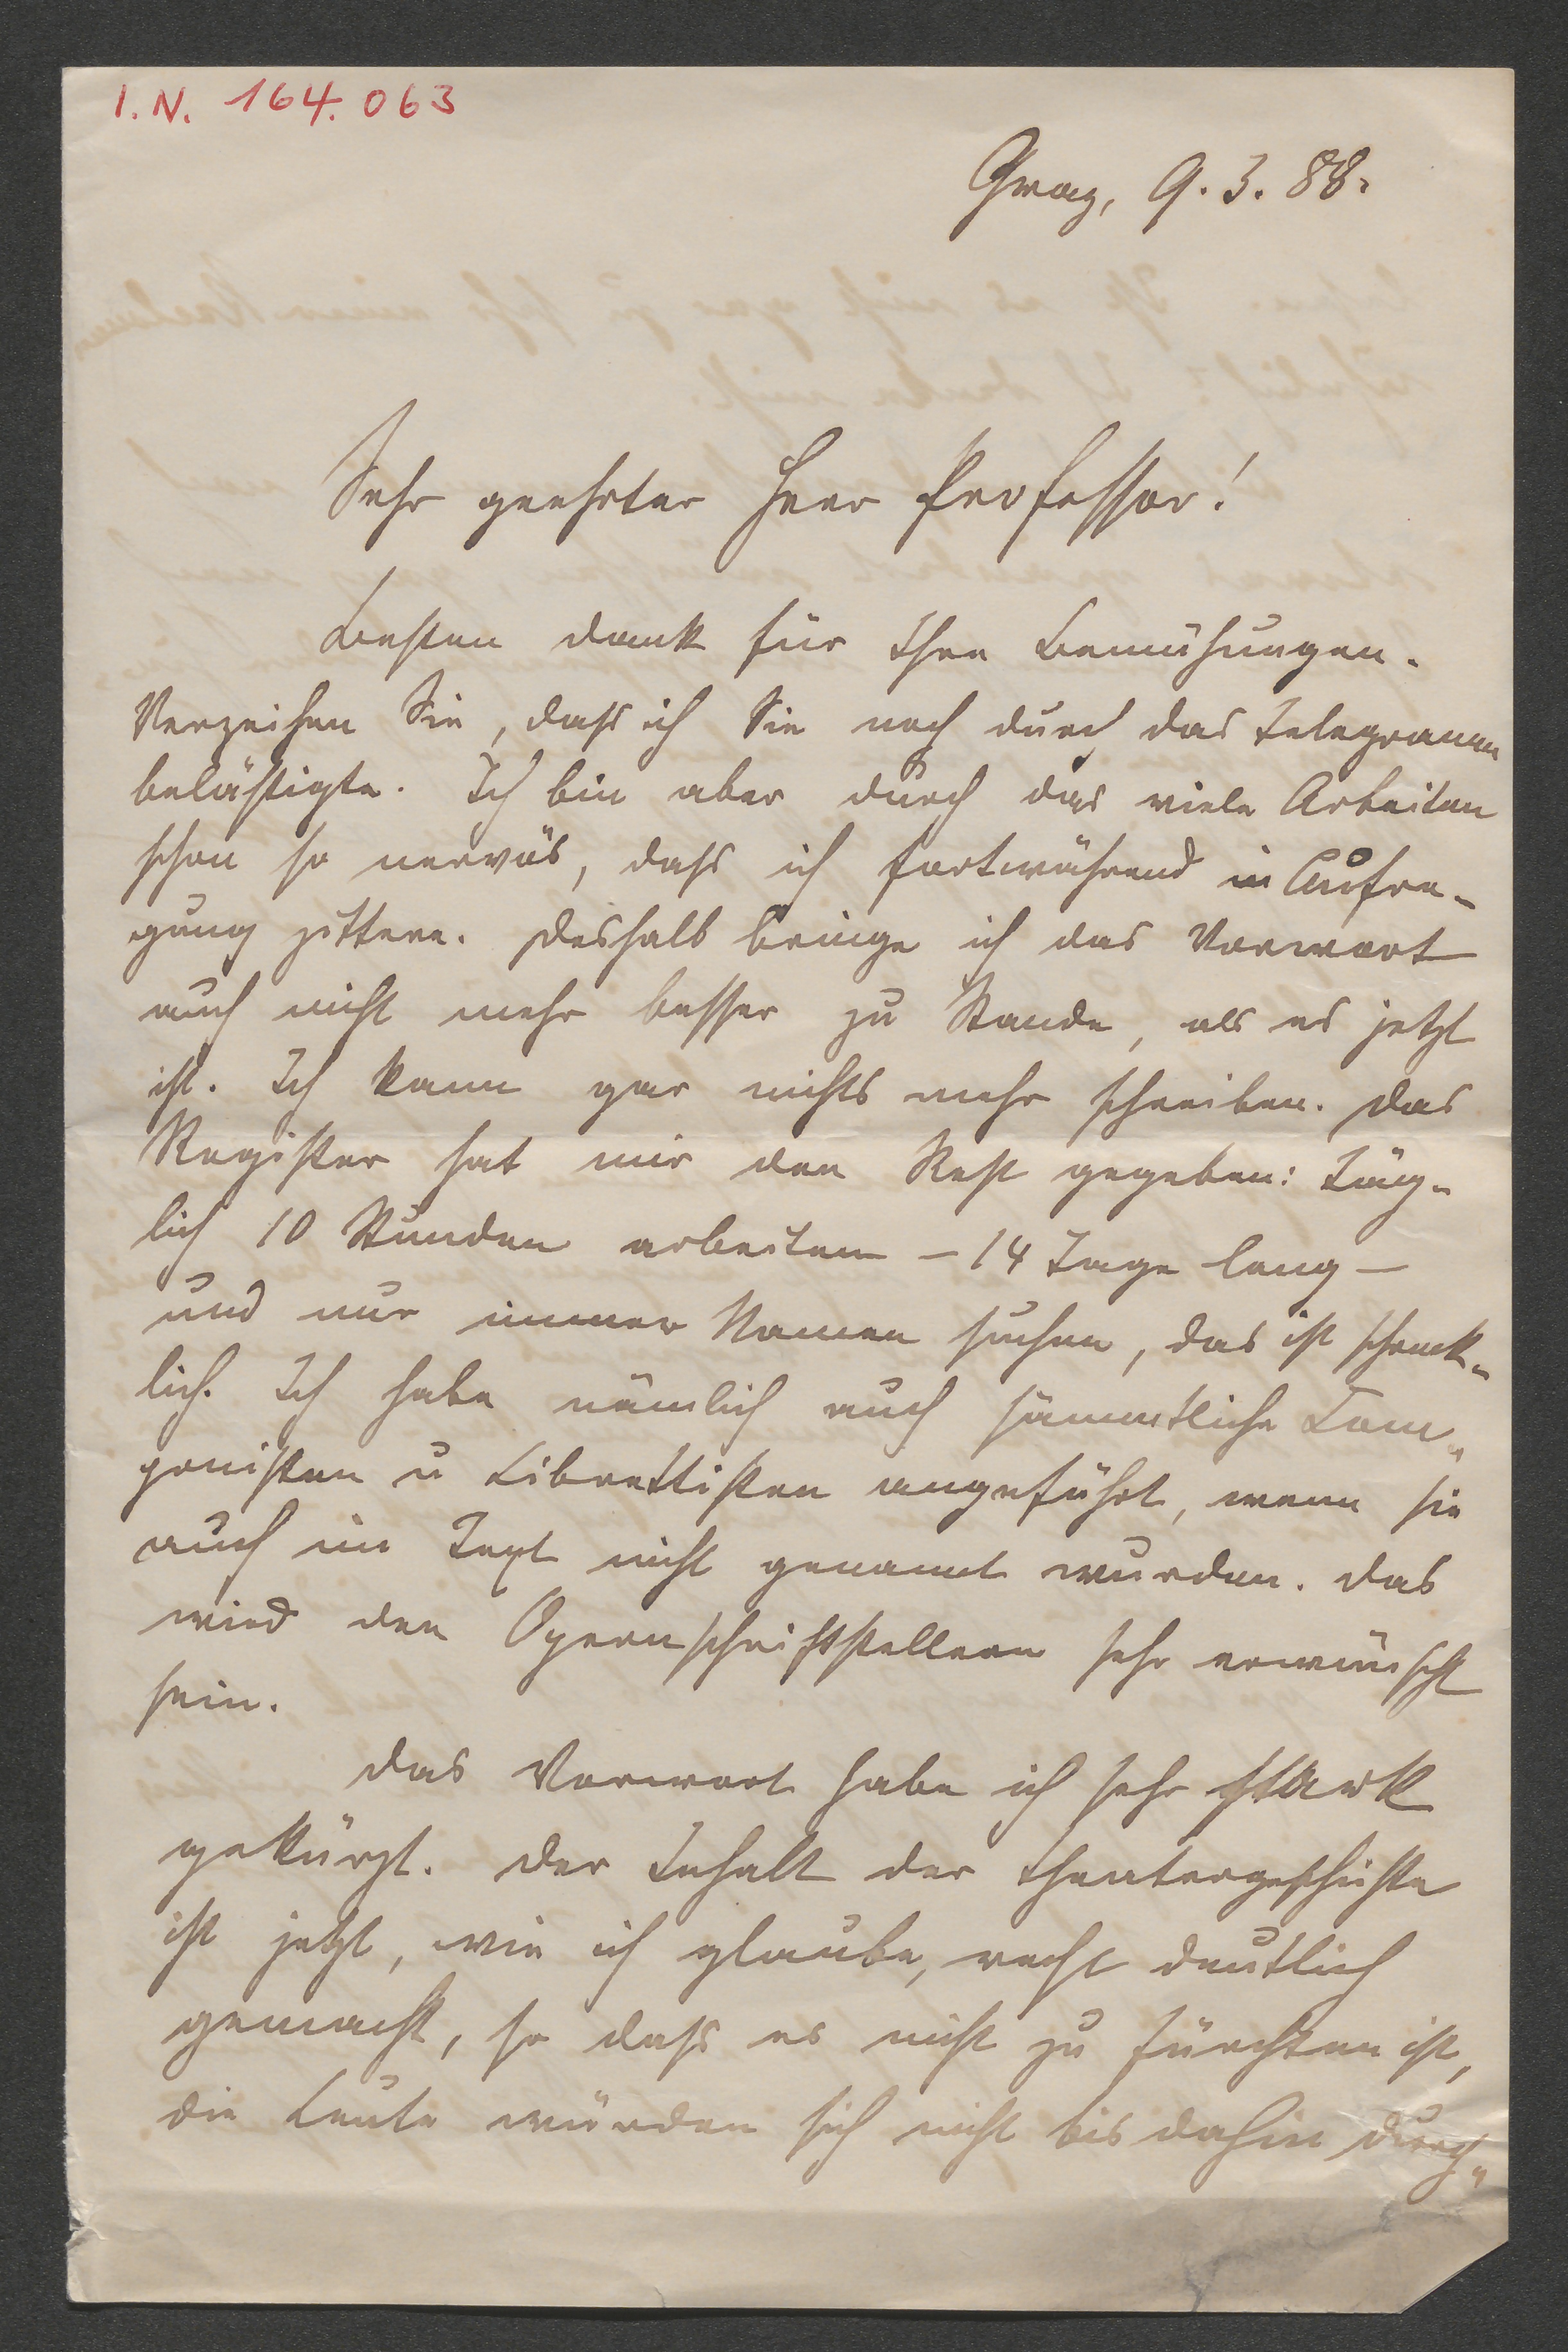 I. N. 164.063
Graz, 9. 3. 88.
Sehr geehrter Herr Professor!
Besten Dank für Ihre Bemühungen.
Verzeihen Sie, dass ich Sie noch durch das Telegramm
belästigte. Ich bin aber durch das viele Arbeiten
schon so nervös, dass ich fortwährend in Aufre-
gung zittere. Deshalb bringe ich das Vorwort
auch nicht mehr besser zu Stande, als es jetzt
ist. Ich kann gar nichts mehr schreiben. Das
Register hat mir den Rest gegeben: Täg-
lich 10 Stunden arbeiten – 14 Tage lang –
und nur immer Namen suchen, das ist schreck-
lich. Ich habe nämlich auch sämmtliche Com-
ponisten u Librettisten angeführt, wenn sie
auch im Text nicht genannt wurden. Das
wird den Opernschriftstellern sehr erwünscht
sein.
Das Vorwort habe ich sehr stark
gekürzt. Der Inhalt der Theatergeschichte
ist jetzt, wie ich glaube, recht deutlich
gemacht, so dass es nicht zu fürchten ist,
die Leute würden sich nicht bis dahin durch-